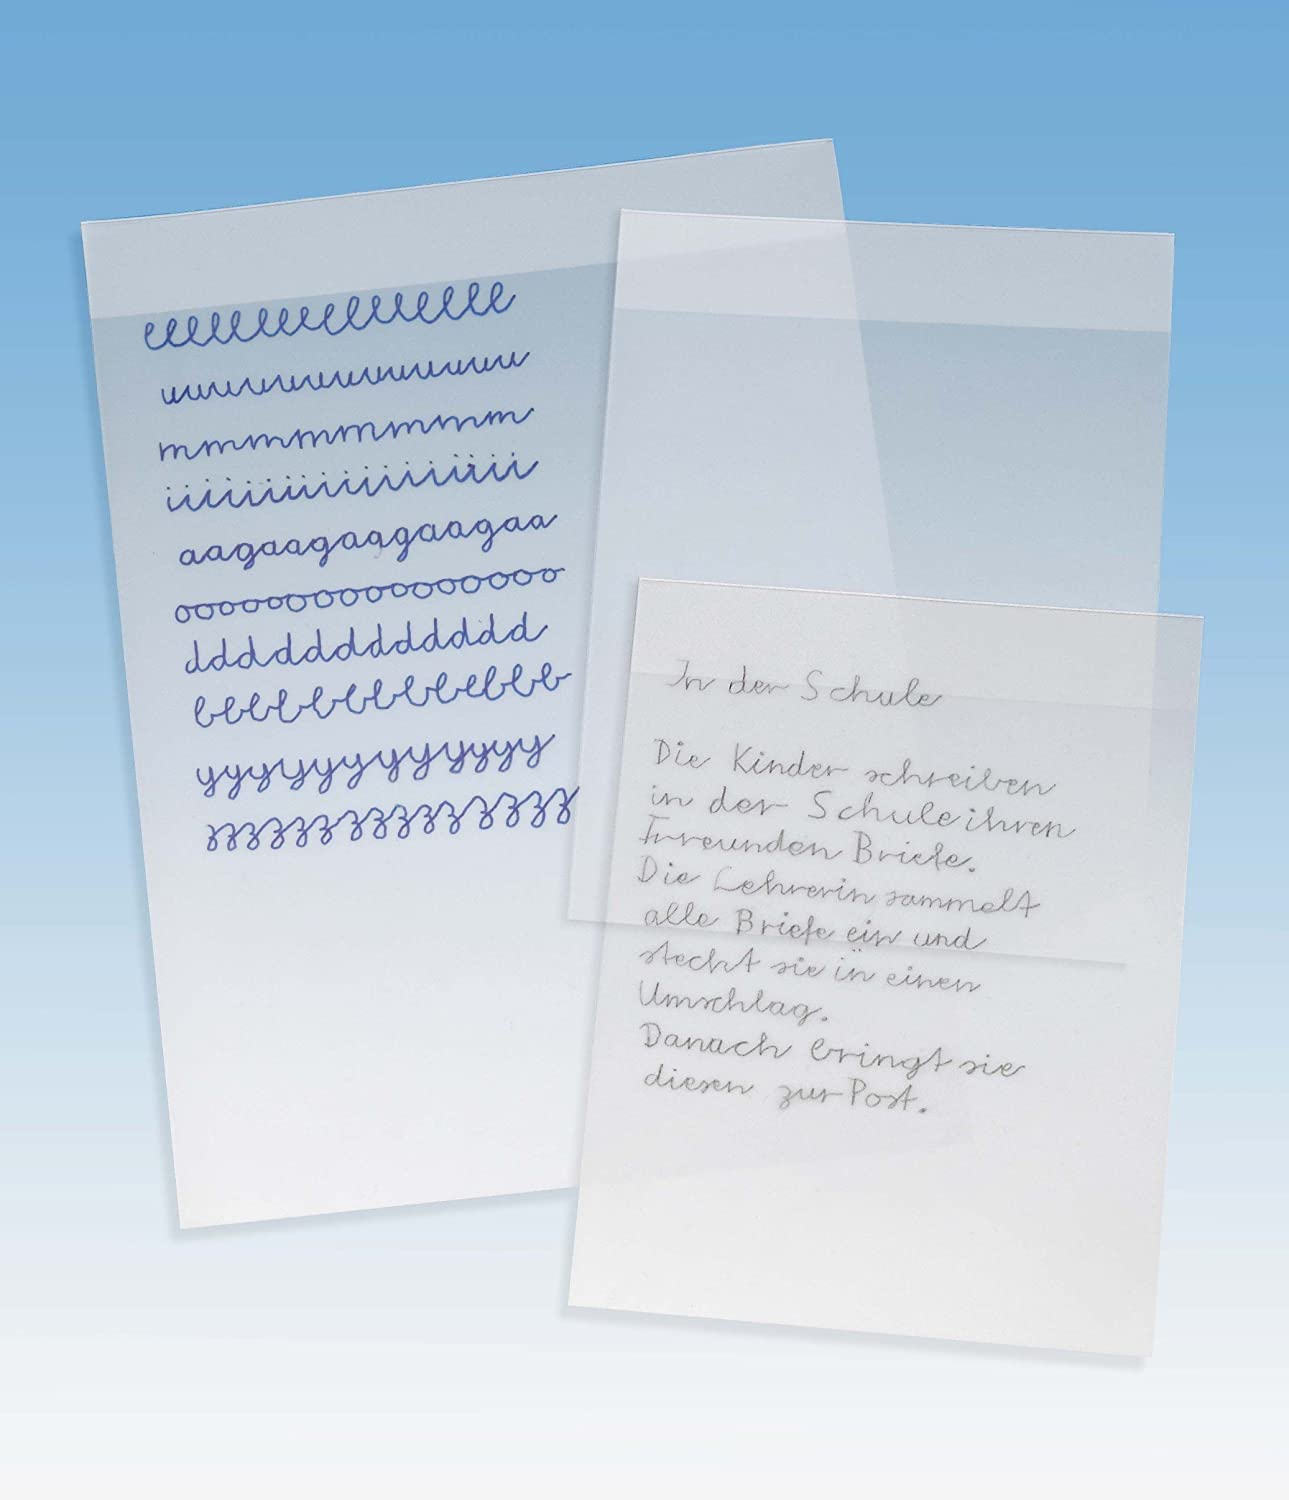 eeeeeeeeeeeeeeeee
uuuuuuuuuuuuu
mmmmmmmmm
iiiiiiiiiiiiiiiiii
aagaagaagaagaa
oooooooooooooooo
ddddddddddddd
bebbbbbbbebbb
yyyyyyyyyyyyy
zzzzzzzzzzzzzz
In der Schule
Die Kinder schreiben
in der Schule ihren
Freunden Briefe.
Die Lehrerin sammelt
alle Briefe ein und
steckt sie in einen
Umschlag.
Danach bringt sie
diesen zur Post.